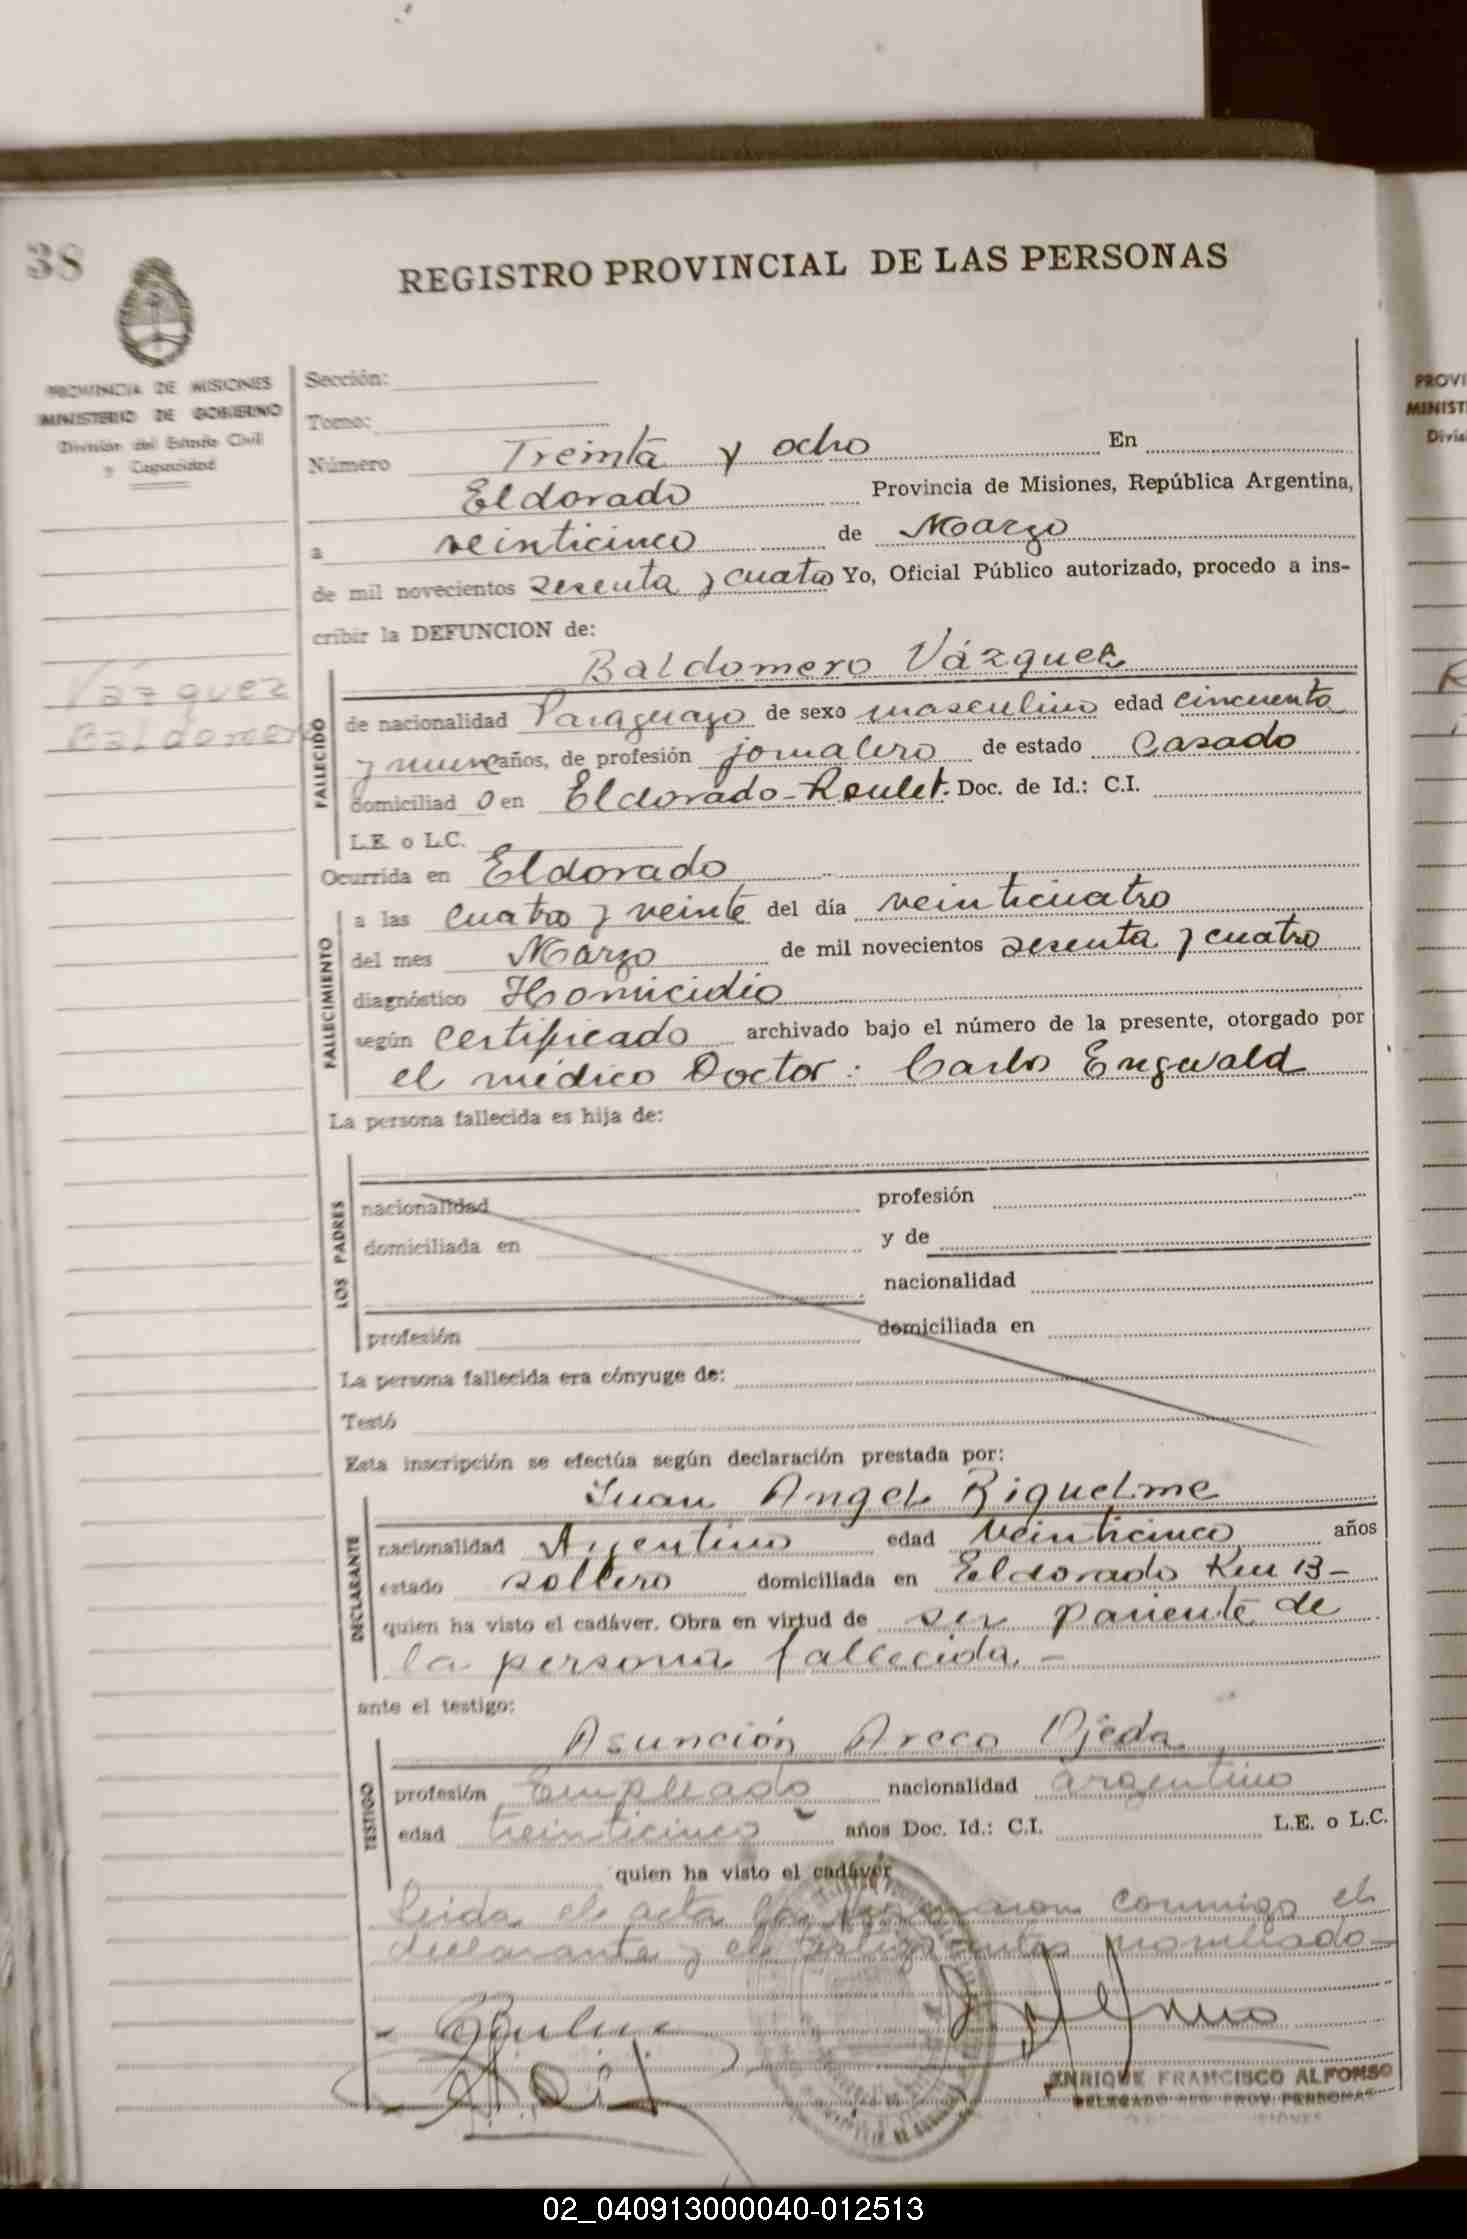 38
REGISTRO PROVINCIAL DE LAS PERSONAS
PROVINCIA DE MISIONES
MINISTERIO DE GOBIERNO
División del Estado Civil
y Capacidad
Sección:
Tomo:
Número Treinta y ocho En
Eldorado Provincia de Misiones, República Argentina,
a veinticinco de Marzo
de mil novecientos sesenta y cuatro Yo, Oficial Público autorizado, procedo a ins-
cribir la DEFUNCION de:
Vázquez
Baldomero
FALLECIDO
Baldomero Vázquez
de nacionalidad Paraguayo de sexo masculino edad cincuenta
y nueve años, de profesión jornalero de estado Casado
domiciliad o en Eldorado-Roulet. Doc. de Id.: C.I.
L.E. o L.C.
Ocurrida en Eldorado
FALLECIMIENTO
a las cuatro y veinte del día veinticuatro
del mes Marzo de mil novecientos sesenta y cuatro
diagnóstico Homicidio
según certificado archivado bajo el número de la presente, otorgado por
el médico Doctor: Carlos Engwald
La persona fallecida es hija de:
LOS PADRES
nacionalidad profesión
domiciliada en y de
nacionalidad
profesión domiciliada en
La persona fallecida era cónyuge de:
Testó
Esta inscripción se efectúa según declaración prestada por:
DECLARANTE
Juan Angel Riquelme
nacionalidad Argentino edad veinticinco años
estado soltero domiciliada en Eldorado Km 13-
quien ha visto el cadáver. Obra en virtud de ser pariente de
la persona fallecida.-
ante el testigo:
TESTIGO
Asunción Areco Ojeda
profesión Empleado nacionalidad argentino
edad treinticinco años Doc. Id.: C.I. L.E. o L.C.
quien ha visto el cadáver
Leida el acta la conmigo el
declarante y el nombrado-
ENRIQUE FRANCISCO ALFONSO
DELEGADO REG. PROV. PERSONAS
PROVI
MINIST
Divis
02_040913000040-012513